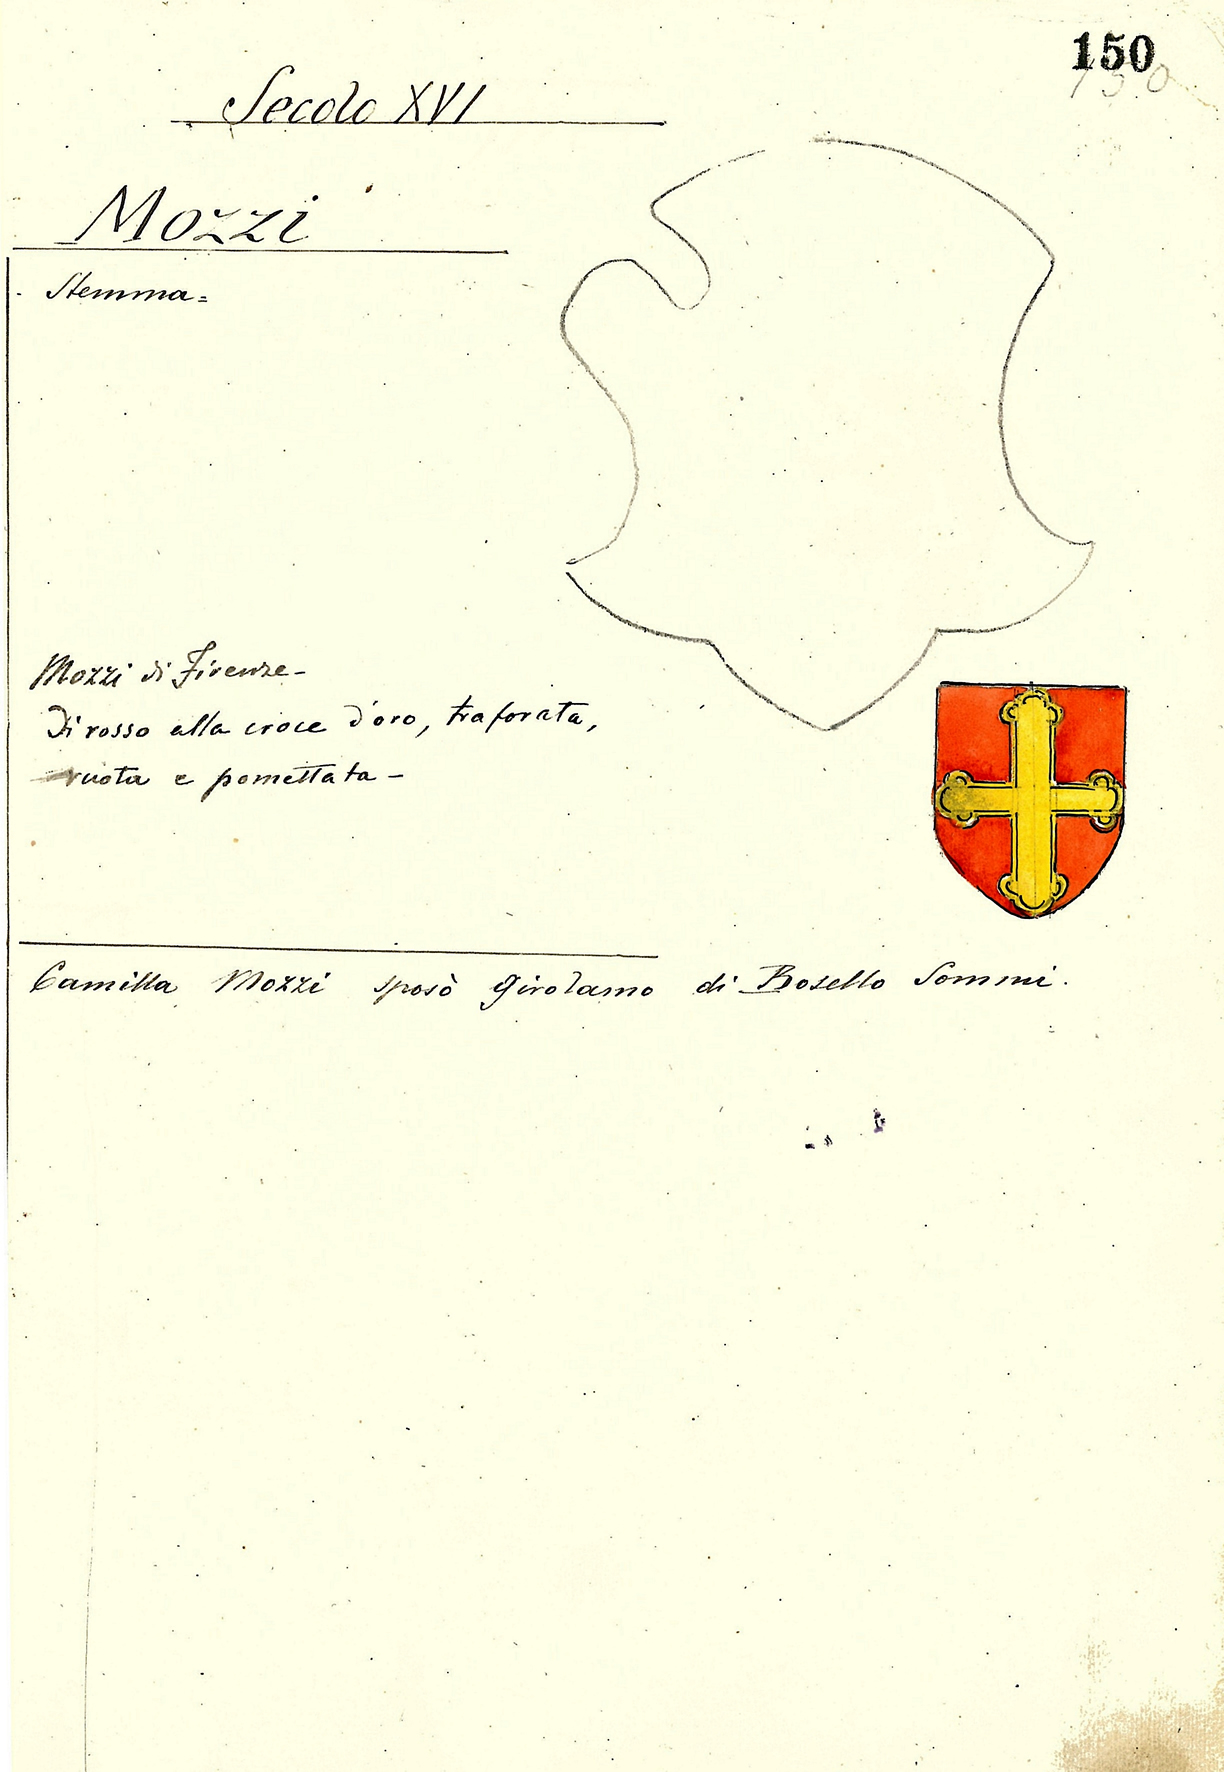 150
150
Secolo XVI
Mozzi
Stemma=
Mozzi di Firenze-
Di rosso alla croce d'oro, traforata,
vuota e pomettata -
Camilla Mozzi sposò Girolamo di Bosello Sommi.